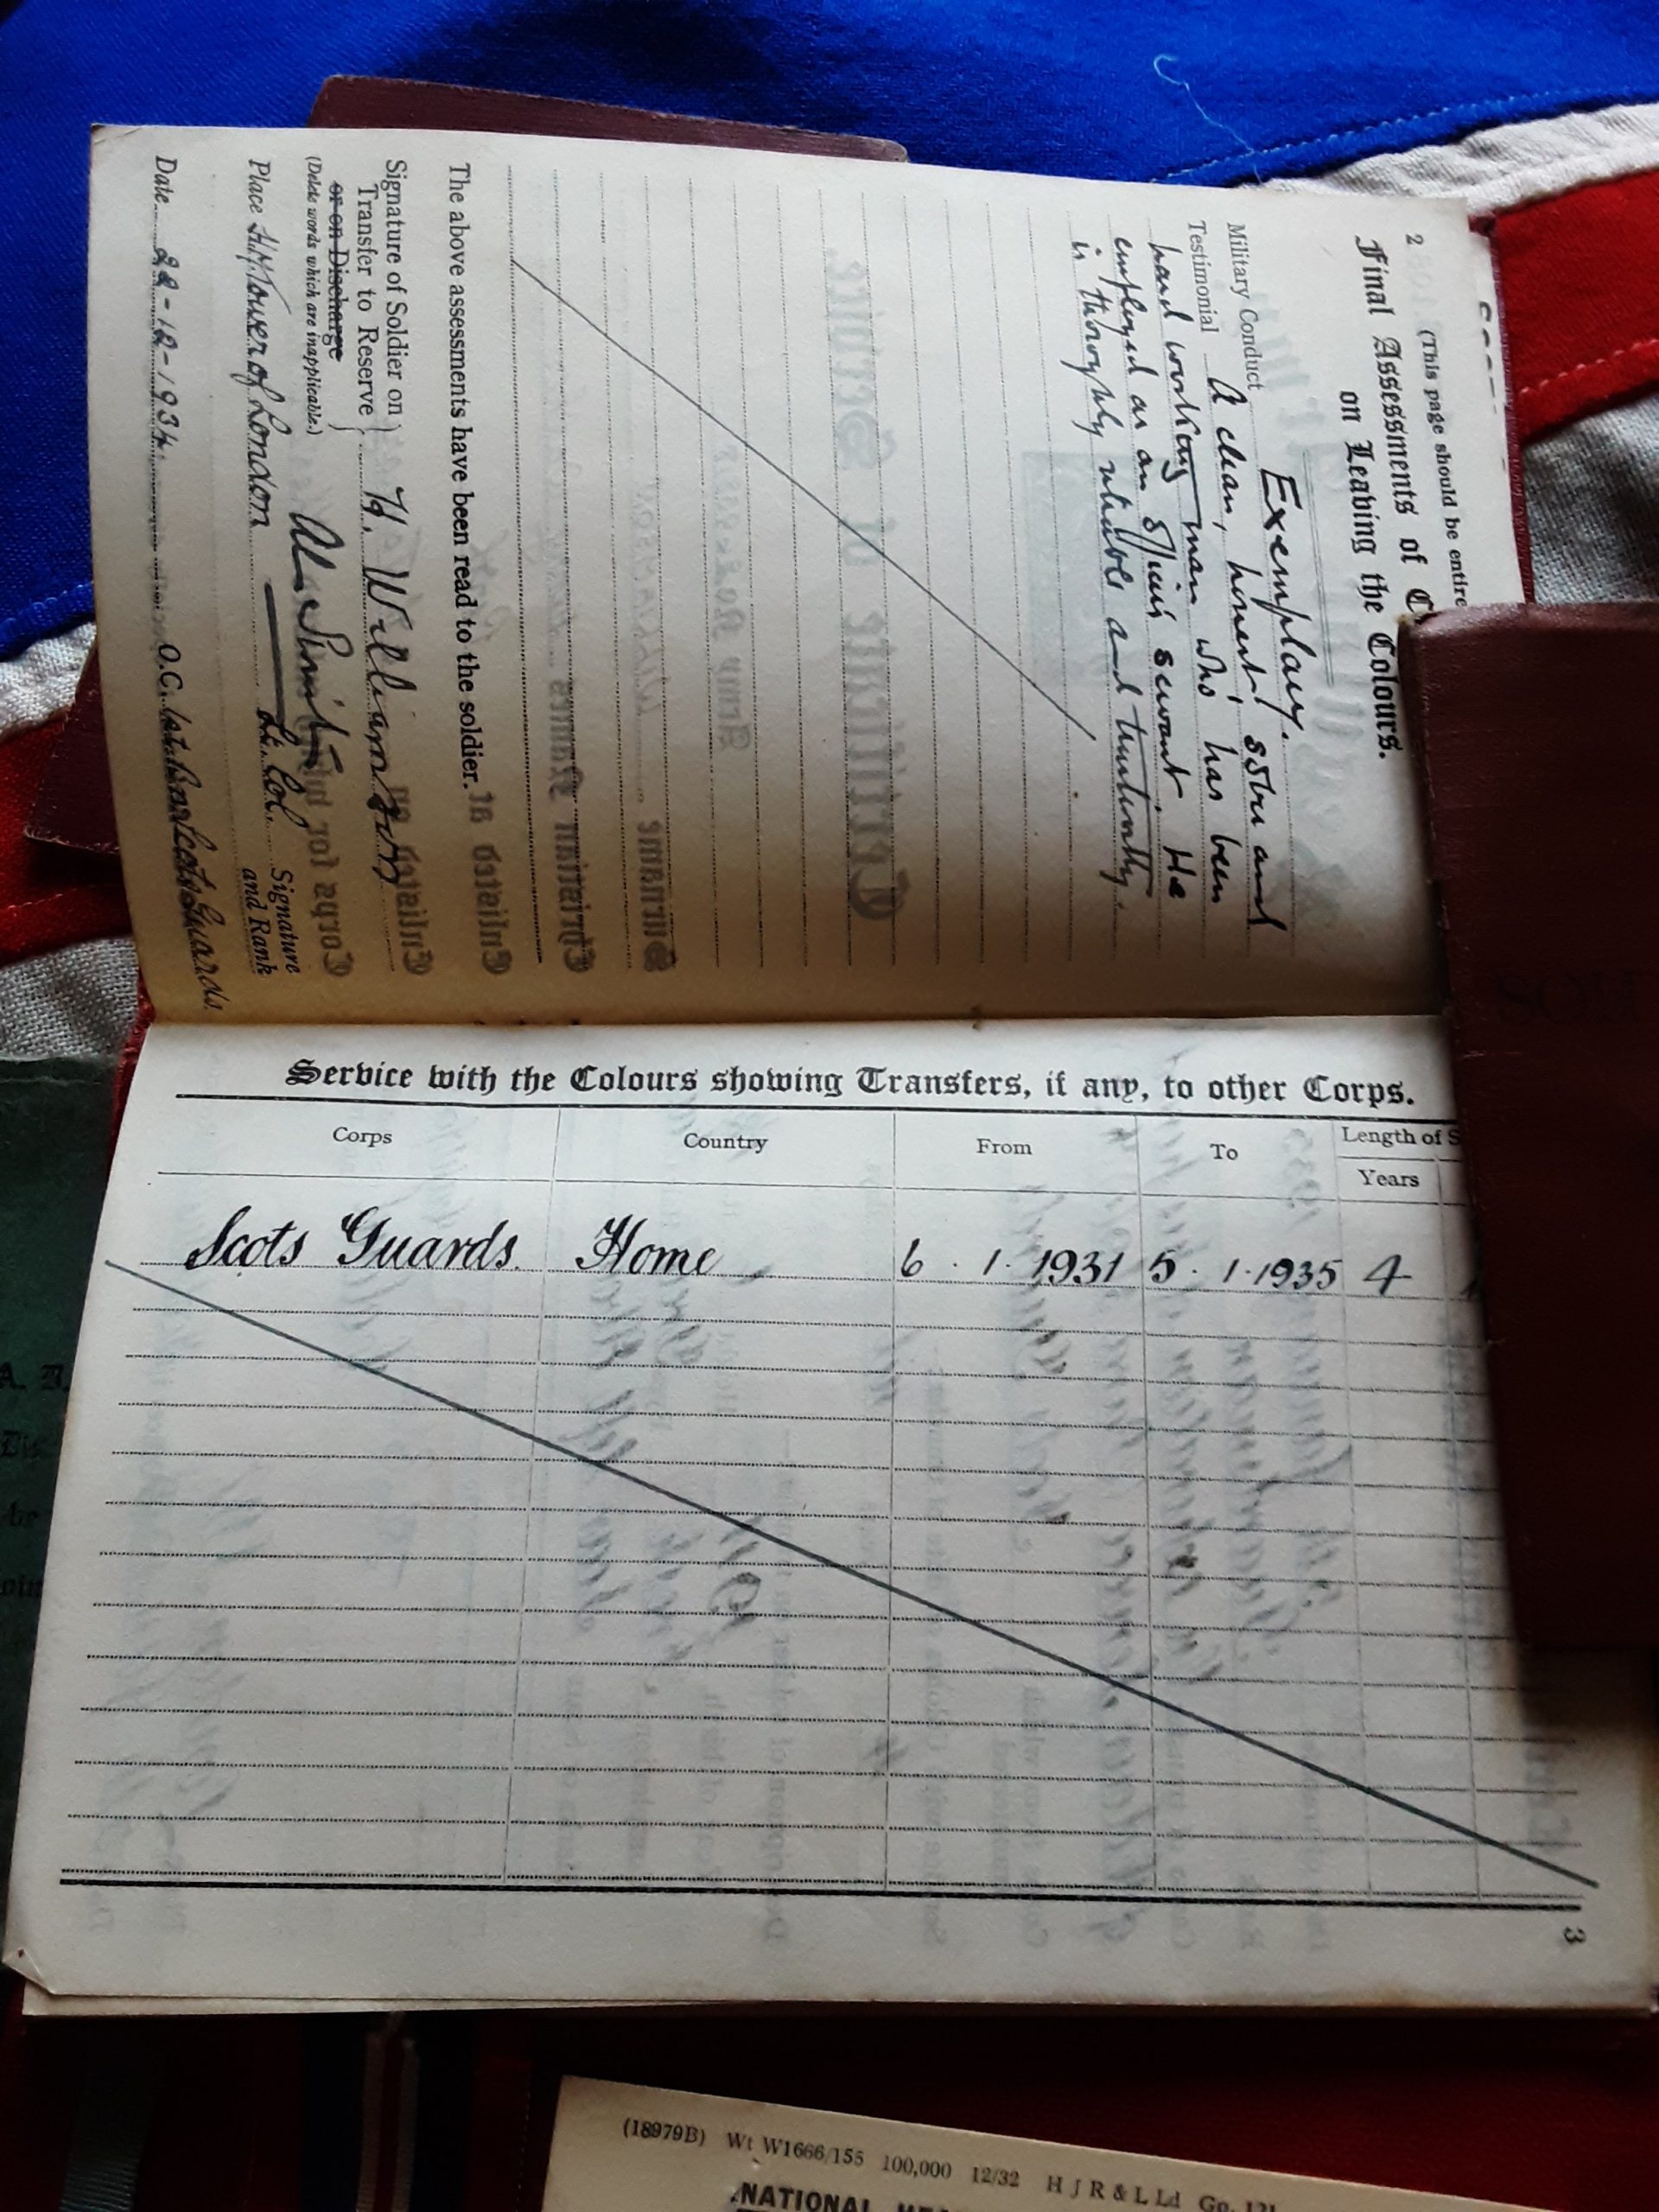 2
(This page should be entire
Final Assessments of C
on Leaving the Colours.
Military Conduct Exemplary.
Testimonial A clean, honest, sober and
hard working man who has been
employed as an Officer's servant. He
is thoroughly reliable and
The above assessments have been read to the soldier.
Signature of Soldier on
Transfer to Reserve
or on Discharge
H. Williamson
(Delete words which are inapplicable.)
Lt. Col. Signature
and Rank
Place H.M. Tower of London
Date 22-12-1934. O.C. 1st. Bn. Scots Guards.
Service with the Colours showing Transfers, if any, to other Corps.
Corps Country From To Length of S
Years
Scots Guards. Home 6.1.1931 5.1.1935 4
3
(18979B) Wt W1666/155 100,000 12/32 H J R & L Ld Gp. 121
NATIONAL